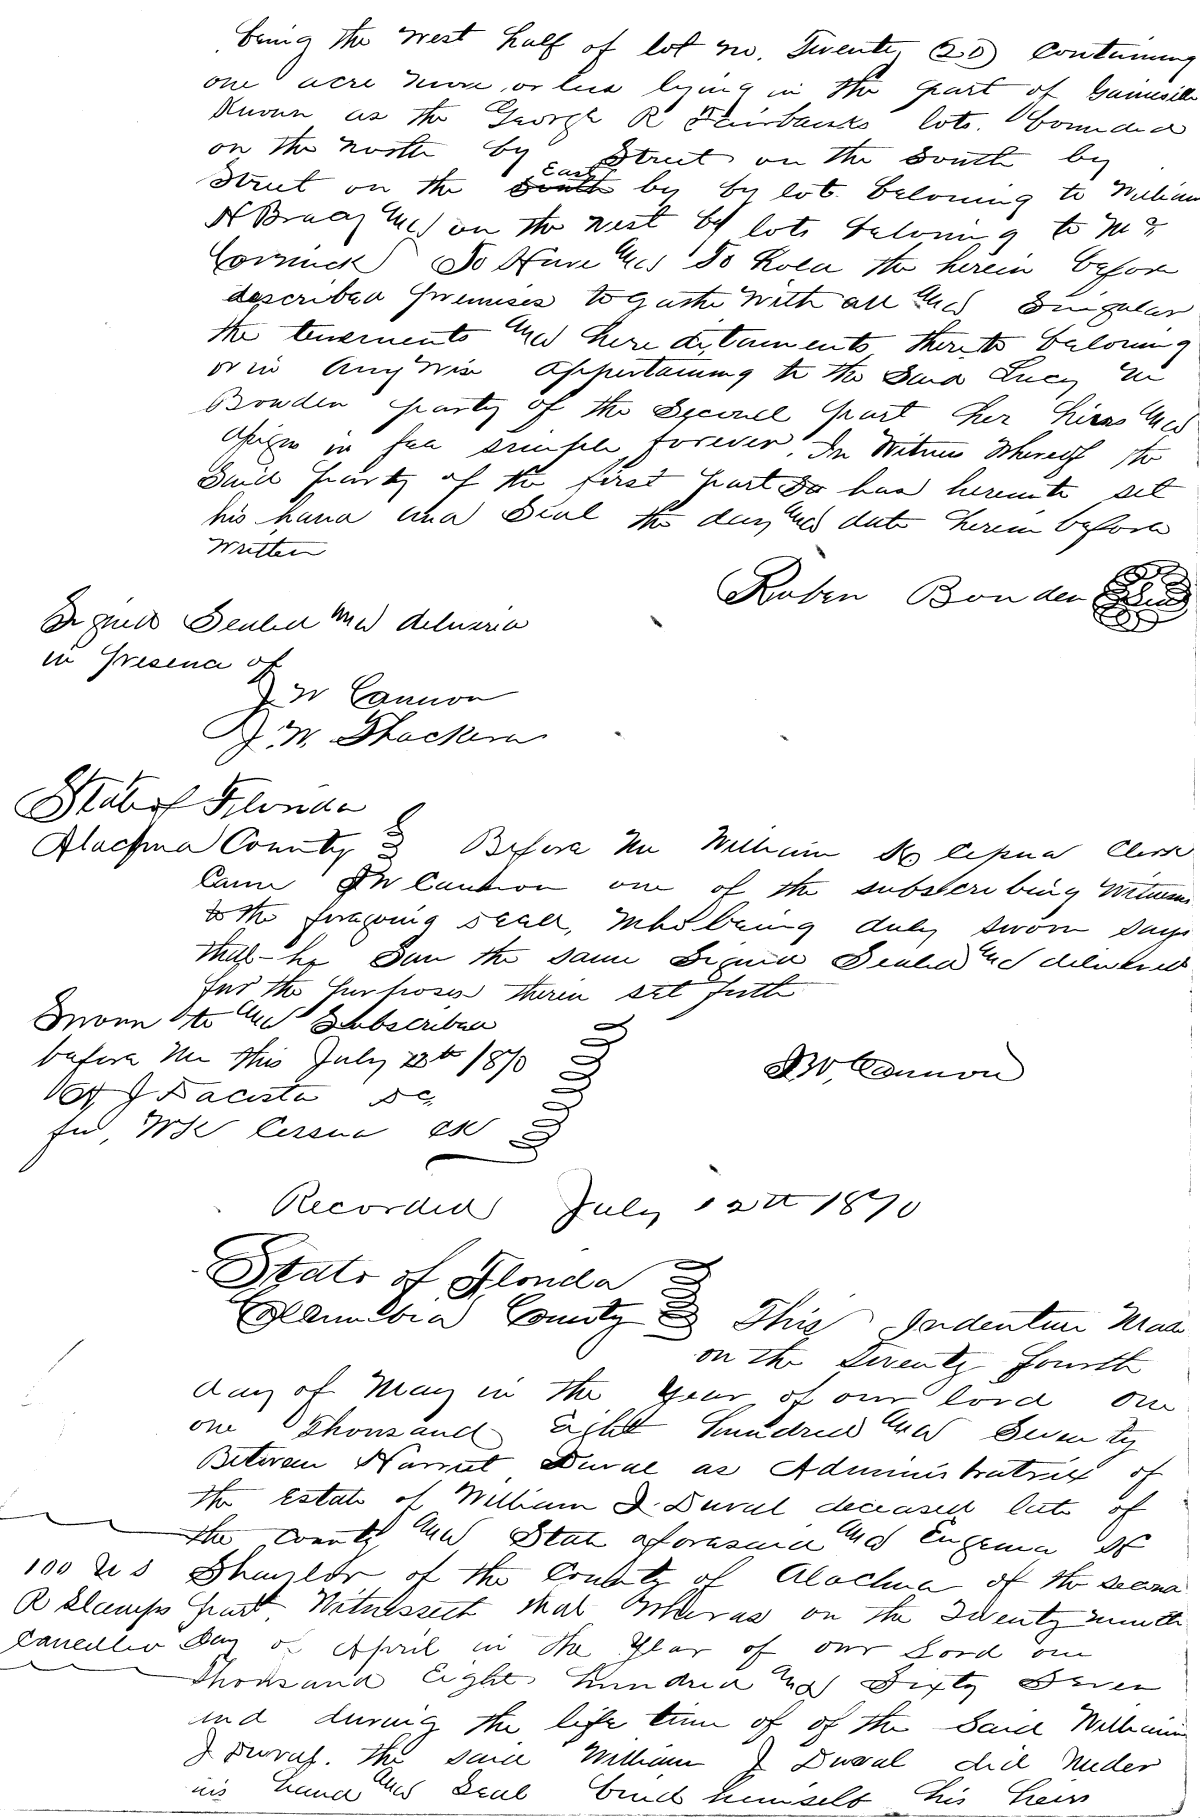 being the west half of lot no. Twenty (20) containing
one acre more or less lying in the part of Gainesville
Known as the George R Fairbanks lots. bounded
on the north by Street on the South by
Street on the South East by by lot beloning to William
H Bracy and on the west by lots beloning to Mc
Cormick To Have and To Hold the herein before
described premises togather with all and Singular
the tenements and hereditaments thereto beloning
or in any wise appertaining to the Said Lucy M
Bowden party of the Second part her heirs and
assigns in fee simple forever. In Witness Whereof the
Said party of the first part has hereunto set
his hand and Seal the day and date herein before
written
Ruben Bowden Seal
Signed Sealed and delivered
in presence of
J W Cannon
J. W. Thackera
State of Florida
Alachua County Before me William K Cessna Clerk
Came J W Cannon one of the subscribing Witness
to the foregoing deed, who being duly sworn says
that he Saw the same Signed Sealed and delivered
for the purposes therein set forth
Sworn to and Subscribed
before me this July 12th 1870
J W Cannon
A J Dacosta DC
for, WK Cessna Clk
Recorded July 12th 1870
State of Florida
Collumbia County This Indenture Made
on the Twenty fourth
day of May in the Year of our lord one
one Thousand Eight hundred and Seventy
Between Harriet Duval as Administratrix of
the Estate of William J. Duval deceased late of
the County and State aforesaid and Eugenia H
100 U S Shaylor of the County of Alachua of the second
R Stamps part, Witnesseth that Wheras on the Twenty nineth
Cancelled Day of April in the Year of our Lord one
Thousand Eight hundred and Sixty Seven
and during the life time of of the Said William
J Duval. the said William J Duval did under
his hand and Seal bind himself his heirs